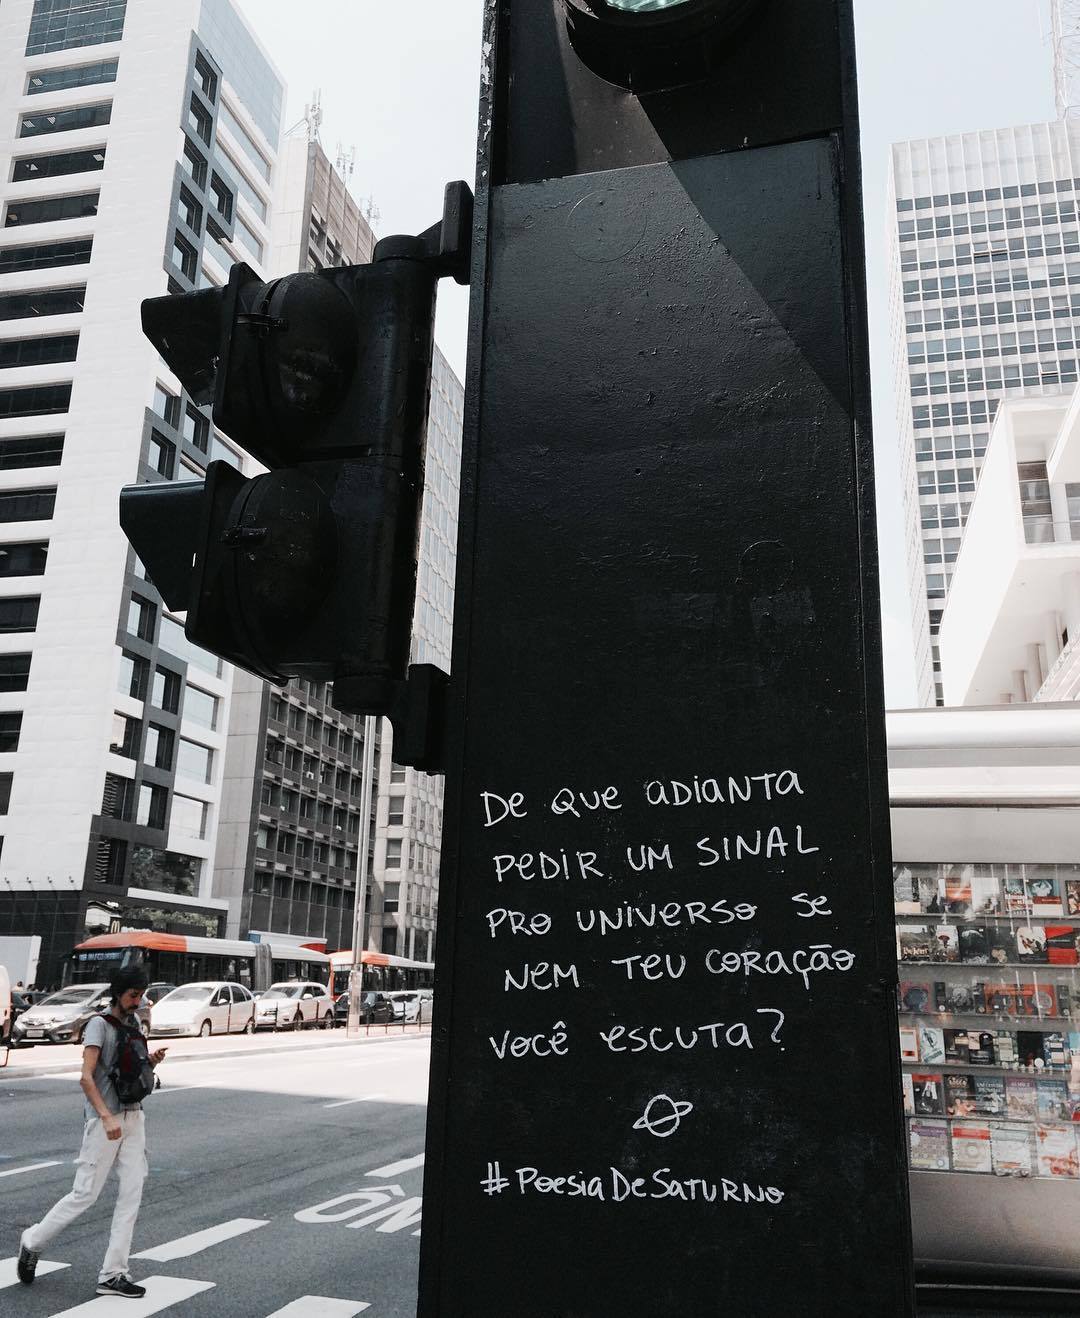 De que adianta
pedir um sinal
pro universo se
nem teu coração
você escuta?
#PoesiaDeSaturno
ÔN